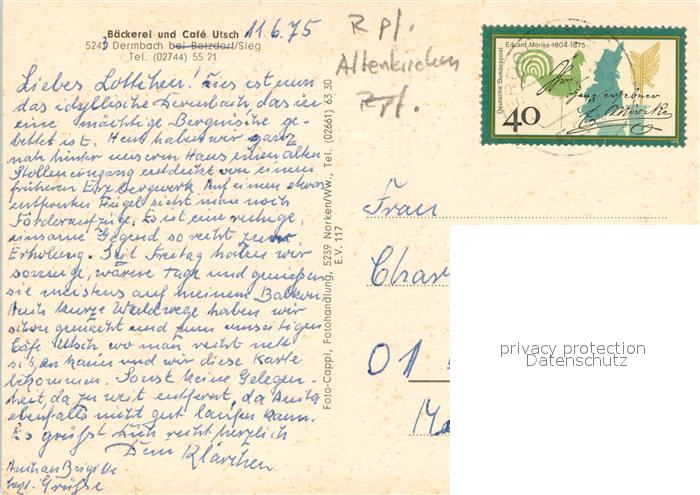 Bäckerei und Café Utsch 11.6.75
5241 Dermbach bei Betzdorf/Sieg
Tel. (02744) 55 21
Liebes Lottchen! Dies ist nun
das idyllische Dermbach, das in
eine mächtige Berg ge-
bettet ist. Heut haben wir ganz
nah hinter unserem Haus einen alten
Stolleneingang entdeckt von einem
früheren Erzbergwerk. Auf einem etwas
entfernten Hügel sieht man noch
Förderaufzüge. Es ist eine ruhige,
einsame Gegend so recht zur
Erholung. Seit Freitag haben wir
sonnige, warme Tage und genießen
sie meistens auf meinem Balkon.
Auch kurze Waldwege haben wir
schon gemacht und zum einzigen
Café Utsch wo man recht nett
sitzen kann und wir diese Karte
bekommen. Sonst keine Gelegen-
heit da zu weit entfernt, da Anita
ebenfalls nicht gut laufen kann.
Es grüßt Dich recht herzlich
Dein Klärchen
Brigitte
Grüsse
Foto-Cappi, Fotohandlung, 5239 Norken/Ww., Tel. (02661) 63 30
E.V. 117
R pf.
Altenkirchen
Rpf.
Deutsche Bundespost
Eduard Mörike·1804-1875
ganz ergebner
E. Mörike
40
Frau
Char
01
Ma
privacy protection
Datenschutz